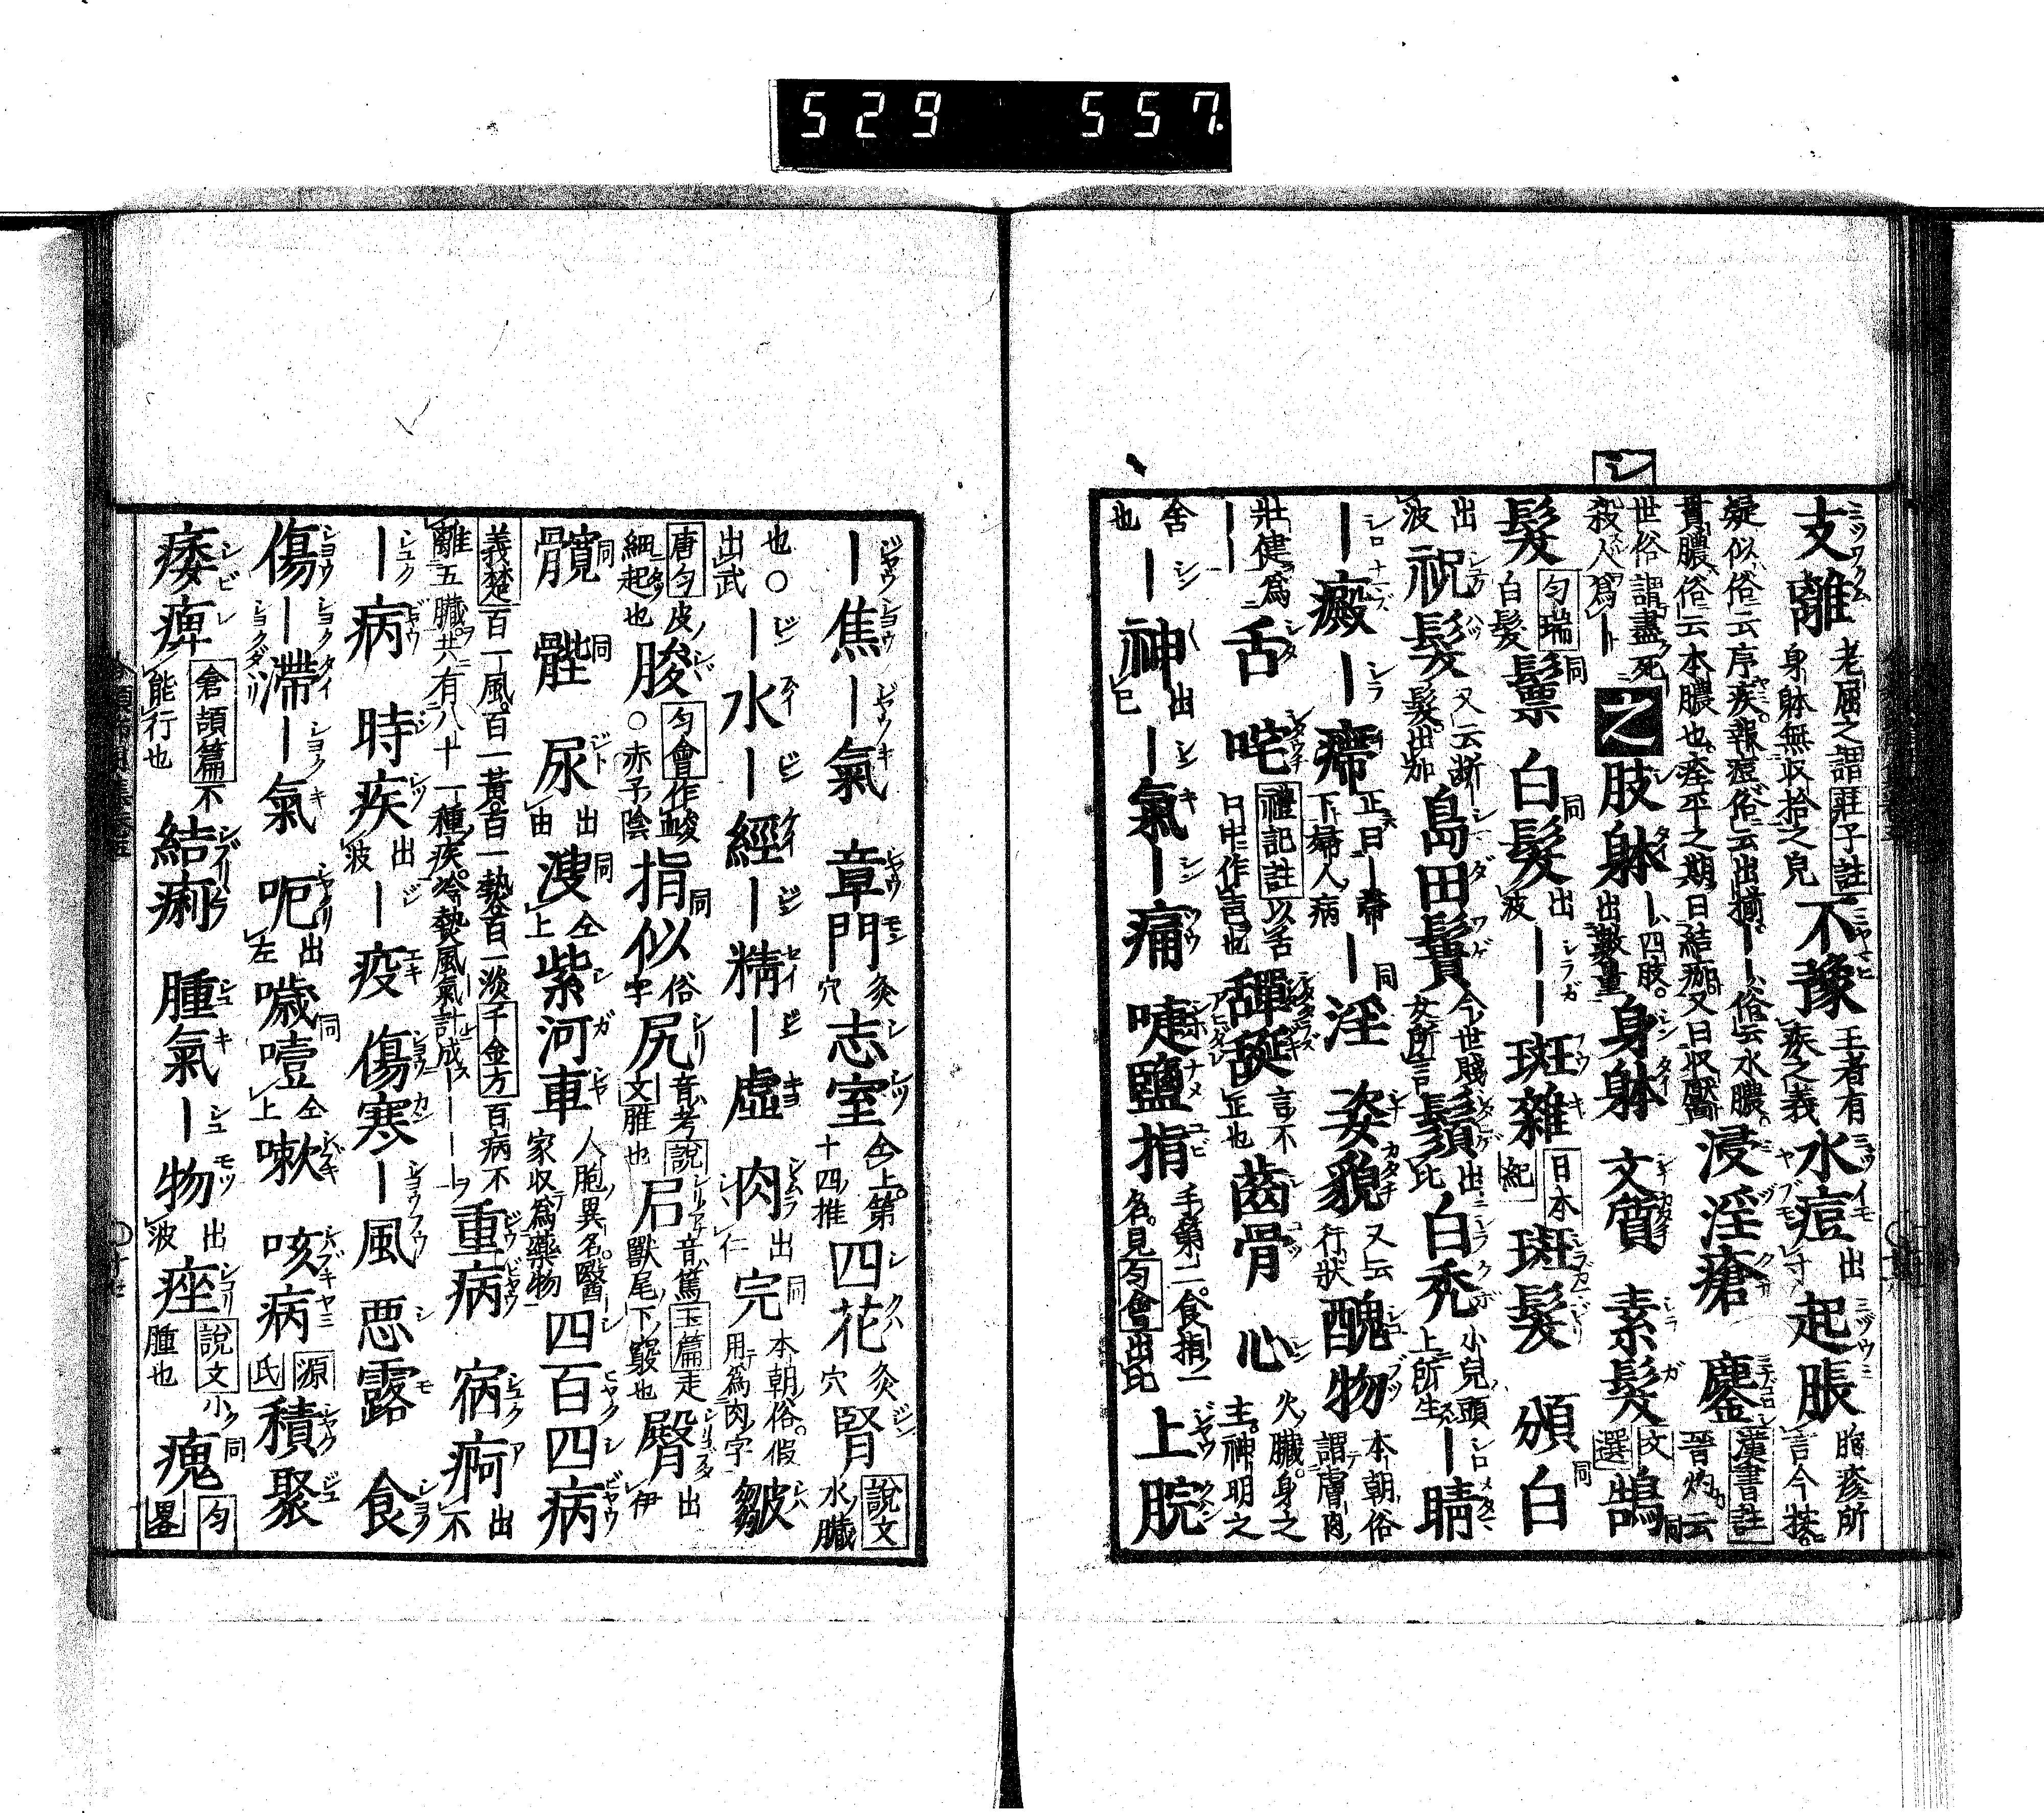 529 557.
シ
支離 老屈之謂 莊子註 身躰無収拾之皃 不豫 王者有疾之義 水痘 出 起脹 脂疹所言今扶
疑似俗云序疾報痘俗云出揃 ｜｜俗云水膿
貫膿俗云本膿也痊平之期日結痂又曰収靨 浸淫瘡 鏖 漢書註 晉灼云
世俗謂盡死殺人爲｜ 之 肢躰 ｜四肢出數量 身躬 文質 素髮 文選 鵠 同
髮 匀瑞 白髮 鬃 同 白髮 同 出波 ｜｜ 斑雜 日本紀 斑髮 頒白 同
出波 祝髮 又云断髮出加 島田鬢 今世賤女所言 鬚 出比 白禿 小兒頭上所生 ｜睛
｜癜 ｜㿃 下婦人病 ｜淫 同 姿貌 又云行状 醜物 本朝俗謂膚肉
壯健爲｜｜ 舌 咤 禮記註 以舌口中作声也 言不正也 齒骨 心 火臟身之主神明之
舍也 ｜神 出巳 ｜氣 ｜痛 啑鹽指 手第二食指ノ名見匀會出比 上脘
｜焦 ｜氣 章門 灸穴 志室 仝上第十四推 四花 灸穴 腎 説文 水臟
也○出武 ｜水 ｜經 ｜精 ｜虛 肉 出仁 完 同 本朝俗假用爲肉字 皺
唐匀 皮細起也 朘 匀會作峻○赤子陰 指似 同 俗字 尻 音考 説文 脽也 𡰪 音篤 玉篇 獸尾下竅也 臀 出伊
髖 同 髀 同 尿 出由 溲 同 仝上 紫河車 人胞異名醫家収爲藥物 四百四病
義楚 百一風百一黃百一熱百一淡 千金方 百病不離五臟共有八十一種疾冷熱風氣計成｜｜｜｜ 重病 宿痾 出不
｜病 時疾 出波 ｜疫 傷寒 ｜風 惡露 食
傷 ｜滯 ｜氣 呃 出左 噦噎 同 仝上 嗽 咳病 源氏 積聚
痿痺 倉頡篇 不能行也 結痢 腫氣 ｜物 出波 痤 説文 小腫也 瘣 同 匀畧